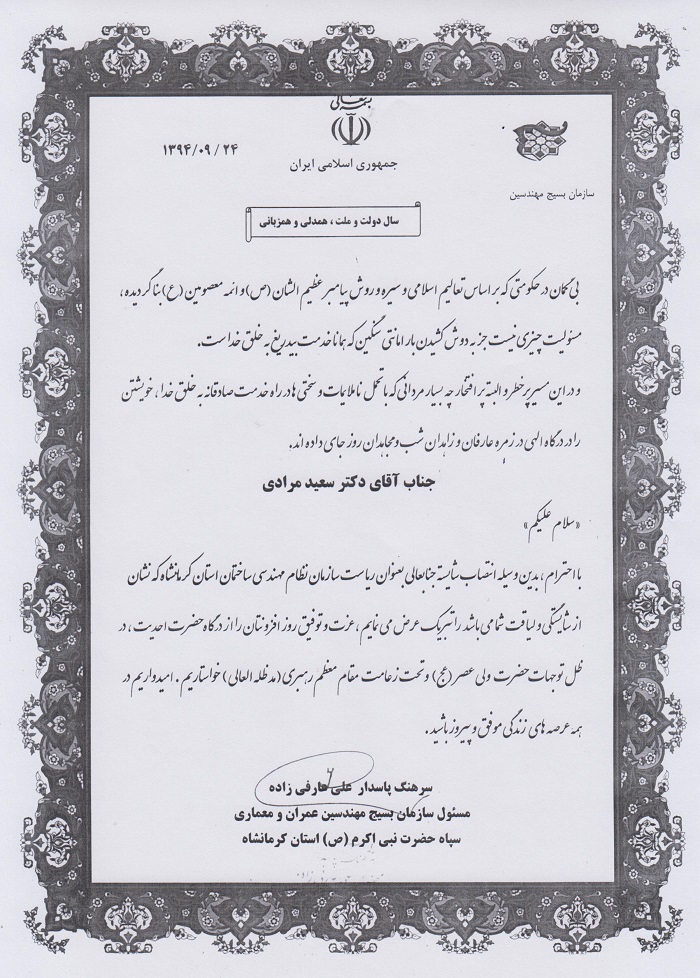 بسمه تعالی
جمهوری اسلامی ایران
سازمان بسیج مهندسین
۱۳۹۴/۰۹/۲۴
سال دولت و ملت ، همدلی و همزبانی
بی گمان در حکومتی که بر اساس تعالیم اسلامی و سیره و روش پیامبر عظیم الشان (ص) و ائمه معصومین (ع) بنا گردیده ،
مسئولیت چیزی نیست جز به دوش کشیدن بار امانتی سنگین که همانا خدمت بیدریغ به خلق خدا است .
و در این مسیر پر خطر و البته پر افتخار چه بسیار مردانی که با تحمل ناملایمات و سختی ها در راه خدمت صادقانه به خلق خدا ، خویشتن
را در درگاه الهی در زمره عارفان و زاهدان شب و مجاهدان روز جای داده اند.
جناب آقای دکتر سعید مرادی
«سلام علیکم»
با احترام ، بدین وسیله انتصاب شایسته جنابعالی بعنوان ریاست سازمان نظام مهندسی ساختمان استان کرمانشاه که نشان
از شایستگی و لیاقت شما می باشد را تبریک عرض می نمایم ، عزت و توفیق روز افزونتان را از درگاه حضرت احدیت ، در
ظل توجهات حضرت ولی عصر (عج) و تحت زعامت مقام معظم رهبری (مد ظله العالی) خواستاریم . امیدواریم در
همه عرصه های زندگی موفق و پیروز باشید .
سرهنگ پاسدار علی عارفی زاده
مسئول سازمان بسیج مهندسین عمران و معماری
سپاه حضرت نبی اکرم (ص) استان کرمانشاه